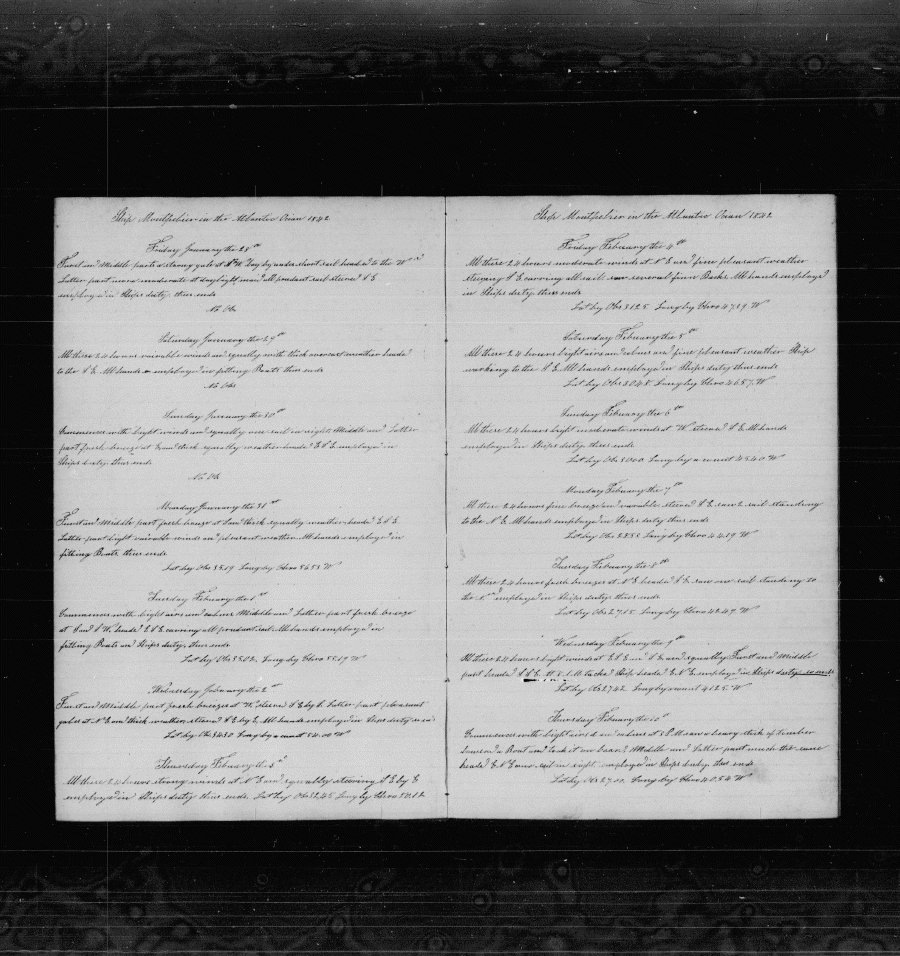 Ship Montpelier in the Atlantic Ocean 1842
Friday January the 28th
First and Middle parts a strong gale at N W Lay by under short sail head to the W
Latter part more moderate at daylight made all prudent sail steered S E
employed in Ships duty thus ends
No Obs
Saturday January the 29th
All these 24 hours variable winds and squally with thick overcast weather headed
to the S E All hands employed in fitting Boats thus ends
No Obs
Sunday January the 30th
Commences with light winds and squally one sail in sight Middle and Latter
part fresh breeze at S and thick squally weather headed E S E employed in
Ships duty thus ends
No Obs
Monday January the 31st
First and Middle part fresh breeze at S and thick squally weather headed E S E
Latter part light variable winds and pleasant weather All hands employed in
fitting Boats thus ends
Lat by Obs 35.19 Long by Chro 56.53 W
Tuesday February the 1st
Commences with light airs and calms Middle and Latter part fresh breeze
at S and S W headed E S E carrying all prudent sail All hands employed in
fitting Boats and Ships duty thus ends
Lat by Obs 35.02 Long by Chro 55.19 W
Wednesday February the 2nd
First and Middle part fresh breezes at W steered S E by E Latter part pleasant
gales at N E and thick weather steered S E by E All hands employed in Ships duty so ends
Lat by Obs 34.30 Long by account 54.00 W
Thursday February the 3rd
All these 24 hours strong winds at N E and squally steering S E by E
employed in Ships duty thus ends Lat by Obs 32.45 Long by Chro 50.12
Ship Montpelier in the Atlantic Ocean 1842
Friday February the 4th
All these 24 hours moderate wind at N E and fine pleasant weather
steering S E carrying all sail saw several fin Backs All hands employed
in Ships duty thus ends
Lat by Obs 31.25 Long by Chro 47.39 W
Saturday February the 5th
All these 24 hours light airs and calms and fine pleasant weather Ship
working to the S E All hands employed in Ships duty thus ends
Lat by Obs 30.48 Long by Chro 46.57 W
Sunday February the 6th
All these 24 hours light moderate winds at W steered S E All hands
employed in Ships duty thus ends
Lat by Obs 30.00 Long by account 45.40 W
Monday February the 7th
All these 24 hours fine breeze and variable steered S E saw 2 sail standing
to the N E All hands employed in Ships duty thus ends
Lat by Obs 28.55 Long by Chro 44.19 W
Tuesday February the 8th
All these 24 hours fresh breezes at N E headed S E saw one sail standing to
the N employed in Ships duty thus ends
Lat by Obs 27.15 Long by Chro 42.49 W
Wednesday February the 9th
All these 24 hours light winds at E S E and S E and squally First and Middle
part headed tacked Ship headed E N E employed in Ships duty so ends
Lat by Obs 27.42 Long by account 41.25 W
Thursday February the 10th
Commences with light airs and calms at 3 P M saw a heavy stick of timber
Lowered a Boat and took it on board Middle and Latter part much the same
headed E N E one sail in sight employed in Ships duty thus ends
Lat by Obs 27.00 Long by Chro 40.54 W